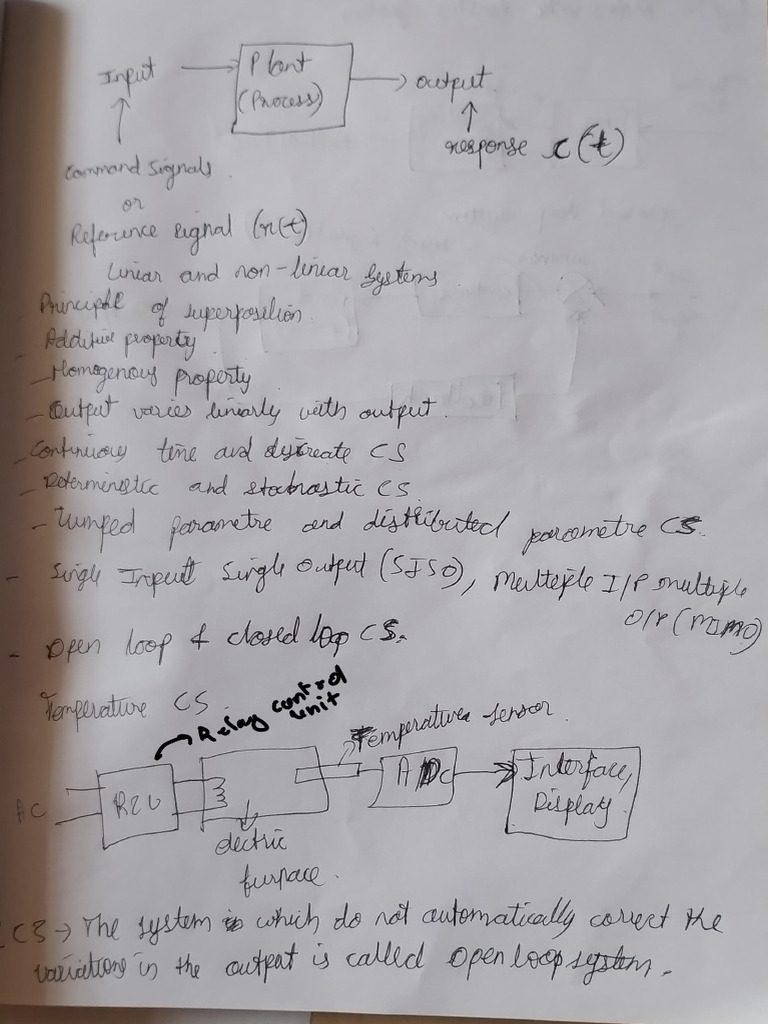 Input → Plant (Process) → output
response c(t)
Command Signals
or
Reference signal (r(t)
Linear and non-linear Systems
- Principle of superposition
- Additive property
- Homogenous property
- Output varies linearly with output.
- Continuous time and discreate CS
- Deterministic and stochrastic CS
- Lumped parametre and distributed parametre CS.
- Single Input Single Output (SISO), Multiple I/P multiple
O/P (MIMO)
- Open loop & closed loop CS.
Temperature CS.
Relay control
unit
Temperature sensor.
AC
ADC
Interface,
Display
electric
furnace.
CS → The system which do not automatically correct the
variations in the output is called open loop system.